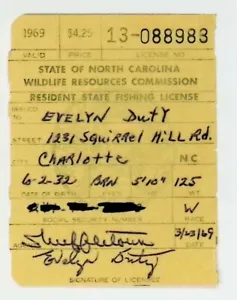 1969 $4.25 13-088983
VALID PRICE LICENSE NO.
STATE OF NORTH CAROLINA
WILDLIFE RESOURCES COMMISSION
RESIDENT STATE FISHING LICENSE
ISSUED TO EVELYN DUTY
STREET 1231 Squirrel Hill Rd.
Charlotte N.C.
6-2-32 BRN 5'10" 125
DATE OF BIRTH
W
SOCIAL SECURITY NUMBER 3/23/69
Evelyn Duty
SIGNATURE OF LICENSEE